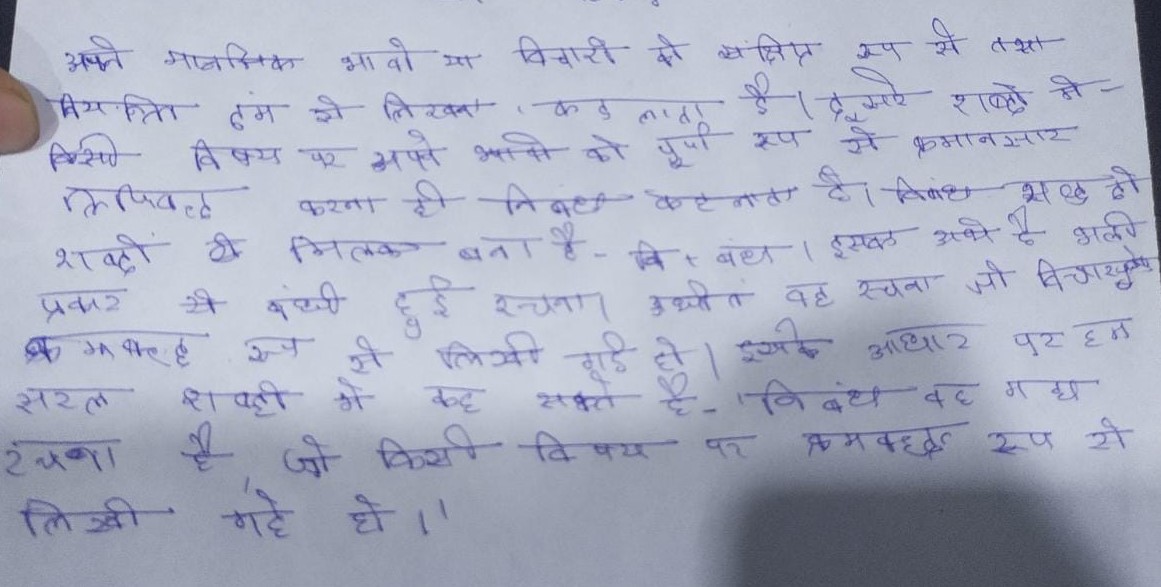 अपने मानसिक भावों या विचारों को संक्षिप्त रूप से तथा
नियन्त्रित ढंग से लिखना कहलाता है। दूसरे शब्दों में -
किसी विषय पर अपने भावों को पूर्ण रूप से क्रमानुसार
लिपिबद्ध करना ही निबंध कहलाता है। निबंध शब्द दो
शब्दों से मिलकर बना है - नि + बंध। इसका अर्थ है भली
प्रकार से बंधी हुई रचना। अर्थात वह रचना जो विचारपूर्वक
क्रमबद्ध रूप से लिखी हुई हो। इसके आधार पर हम
सरल शब्दों में कह सकते है- 'निबंध वह गद्य
रचना है, जो किसी विषय पर क्रमबद्ध रूप से
लिखी गई हो।'